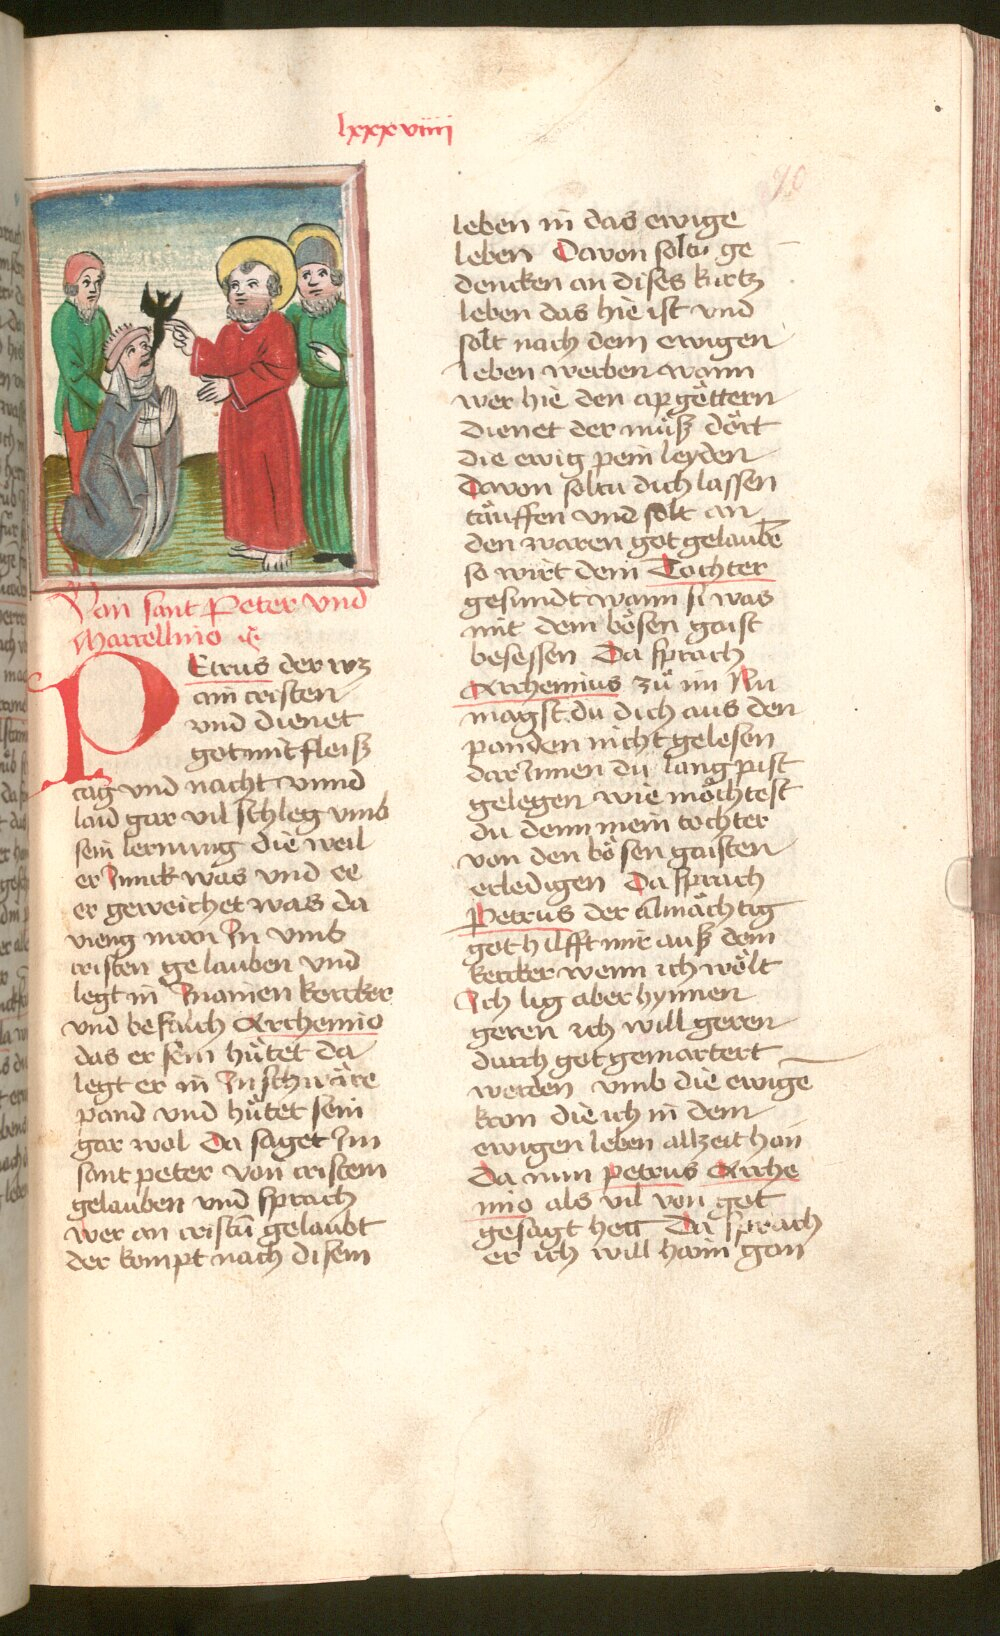 lxxxviiij
90
Von sant Peter vnd
Marcellino
PEtrus der wz
ain cristen
vnd dienet
got mit fleiß
tag vnd nacht vnnd
laid gar vil schleg vmb
sein lernung die weil
er Junck was vnd ee
er geweichet was da
vieng man In vmb
cristen gelauben vnd
legt in Inainen kercker
vnd befalch Archemio
das er sein hůtet da
legt er in In schwäre
pand vnd hůtet sein
gar wol Da saget Im
sant peter von cristem
gelauben vnd sprach
wer an cristū gelaubt
der kompt nach disem
leben in das ewige
leben Davon soltu ge
dencken an dises kurtz
leben das hie ist vnd
solt nach dem ewigen
leben werben wann
wer hie den apgöttern
dienet der můß dört
die ewig pein leyden
Davon soltu dich lassen
täuffen vnd solt an
den waren got gelaubē
so wirt dein Tochter
gesundt wann si was
mit dem bösen gaist
besessen Da sprach
Archemius zů im Nu
magst du dich aus den
panden nicht gelesen
dar Innen du lang pist
gelegen wie möchtest
du denn mein tochter
von den bösen gaisten
erledigen Da sprach
Petrus der almächtig
got hilfft mir auß dem
kercker wenn ich wölt
Ich lig aber hynnen
geren ich will geren
durch got gemartert
werden vmb die ewige
kron die ich in dem
ewigen leben allzeit han
Da nun petrus Arche
mio als vil von got
gesagt hett Da sprach
er ich will haim gan